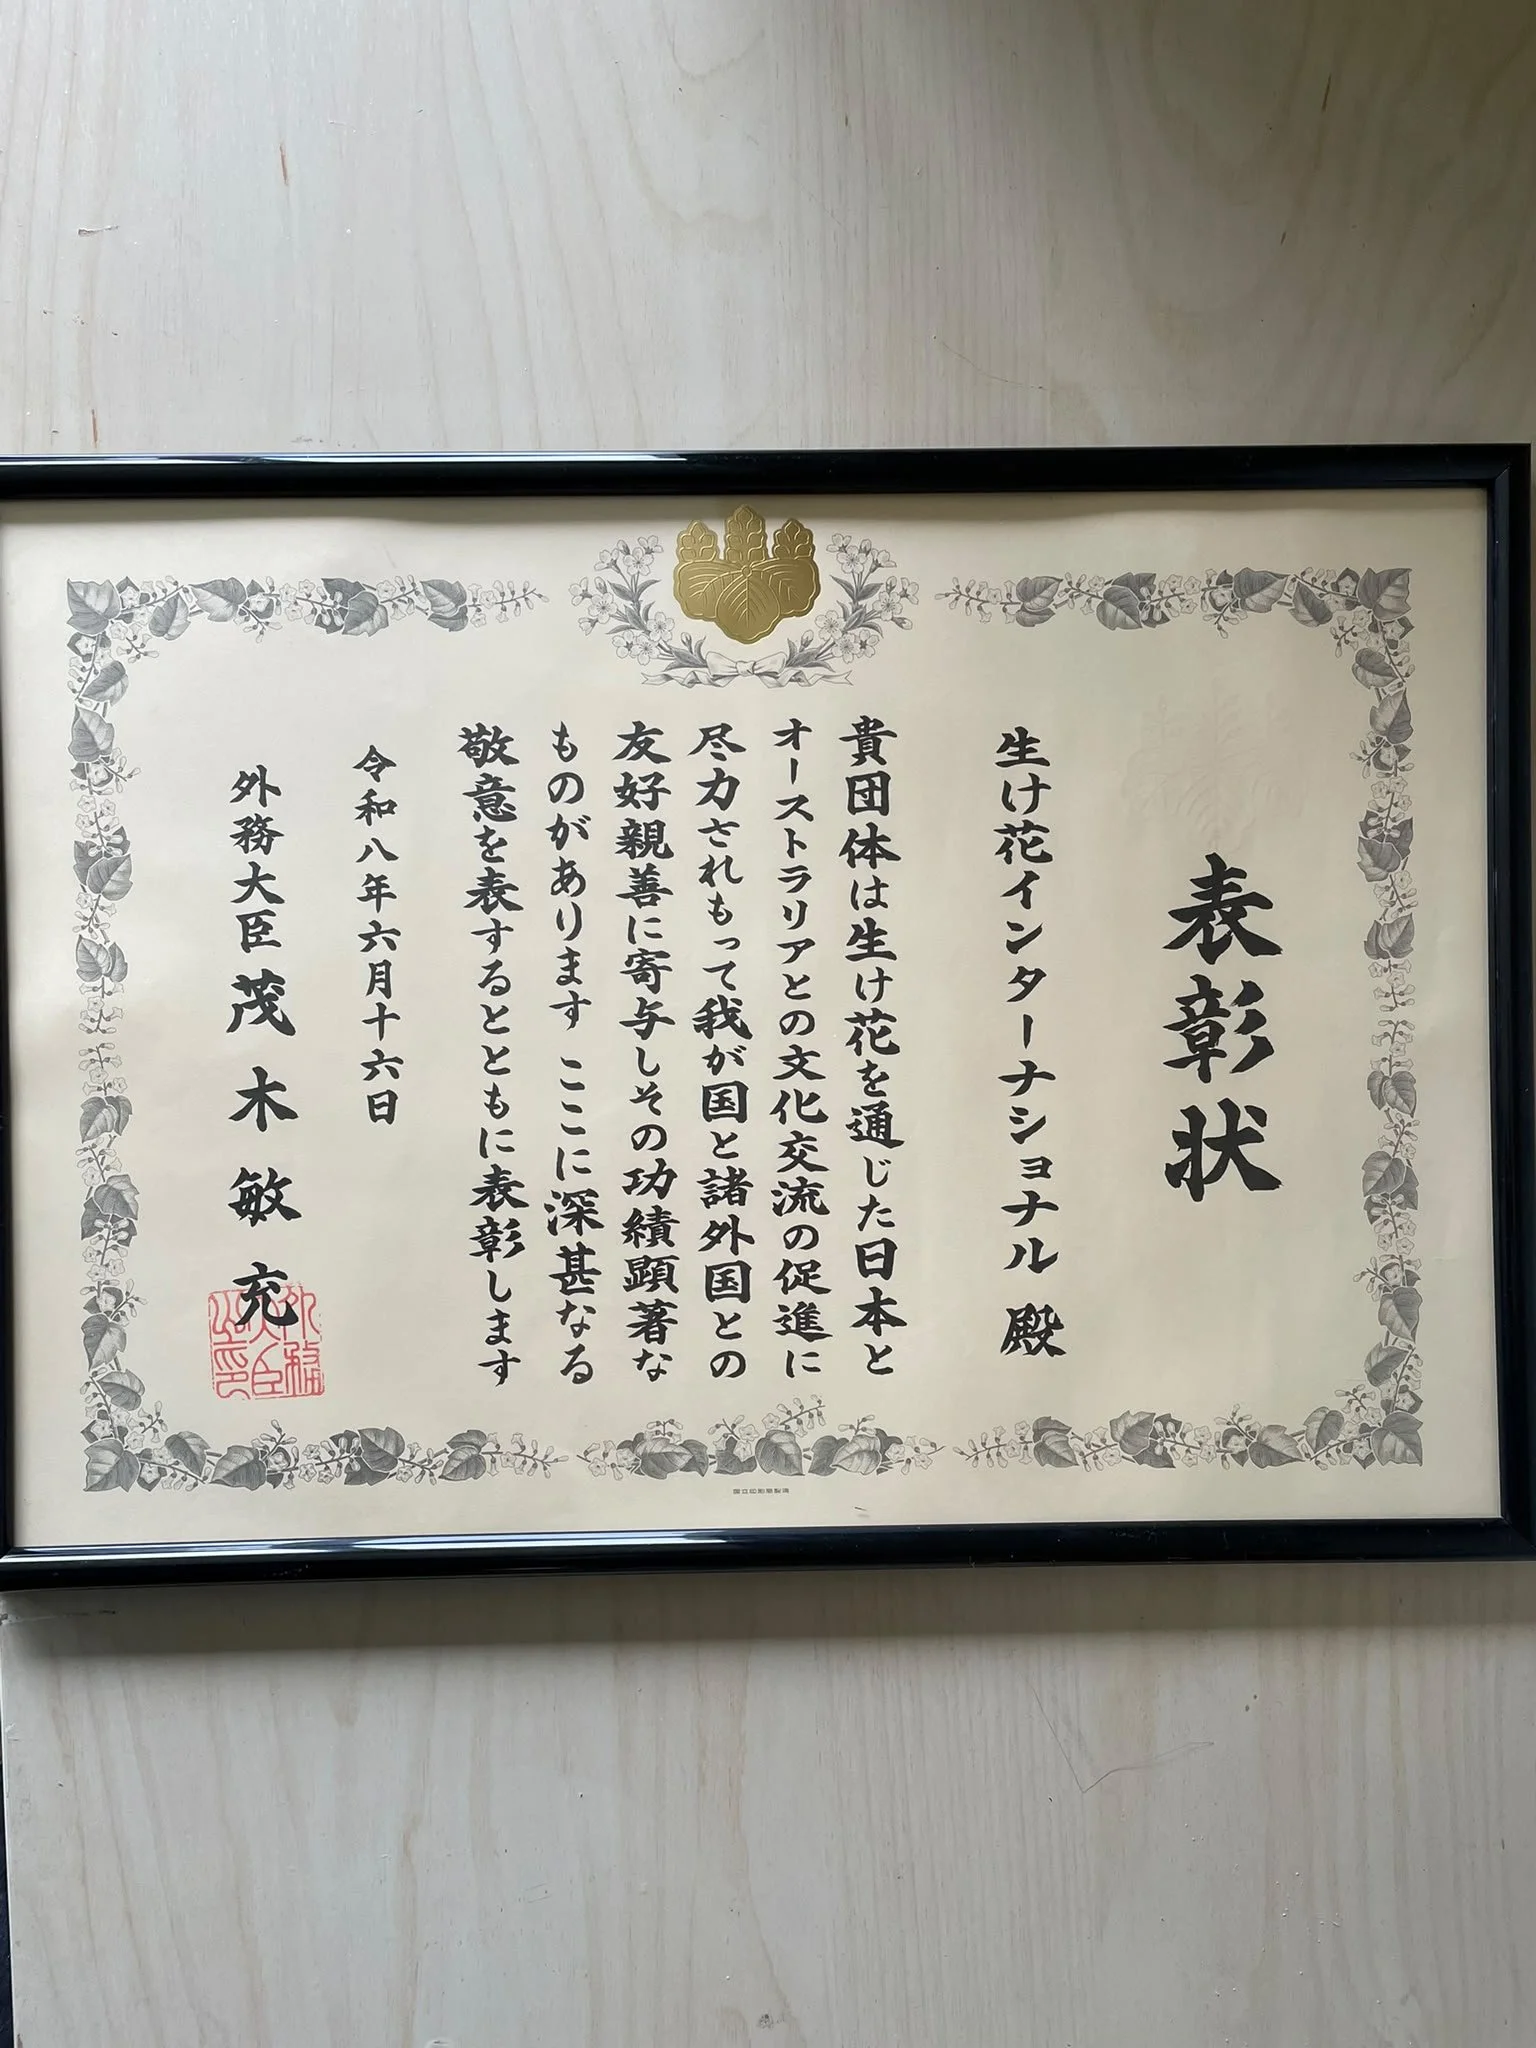 表彰状
生け花インターナショナル 殿
貴団体は生け花を通じた日本と
オーストラリアとの文化交流の促進に
尽力されもって我が国と諸外国との
友好親善に寄与しその功績顕著な
ものがあります ここに深甚なる
敬意を表するとともに表彰します
令和八年六月十六日
外務大臣 茂木敏充
外務大臣之印
国立印刷局製造